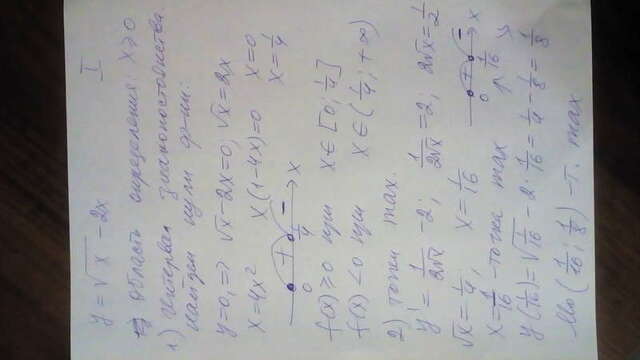 y = √x - 2x
I
Область определения: x ≥ 0
1) Интервал знакопостоянства.
найдем нули ф-ции:
y=0, ⇒ √x - 2x = 0, √x = 2x
x = 4x² x(1-4x)=0 x=0
x = 1/4
0 + 1/4 - x
f(x) ≥ 0 при x ∈ [0; 1/4]
f(x) < 0 при x ∈ (1/4; +∞)
2) Точки max.
y' = 1/2√x - 2; 1/2√x = 2; 2√x = 1/2
√x = 1/4, x = 1/16
0 + 1/16 - x
x = 1/16 - точка max ↗ ↘
y(1/16) = √1/16 - 2·1/16 = 1/4 - 1/8 = 1/8
M₀(1/16; 1/8) - т. max